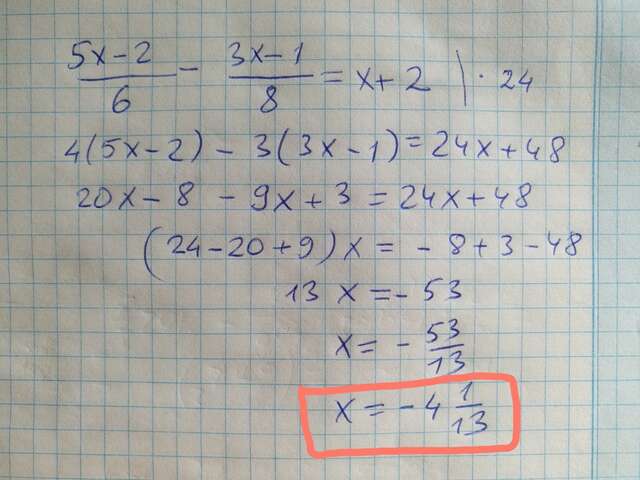 (5x-2)/6 - (3x-1)/8 = x+2 | · 24
4(5x-2) - 3(3x-1) = 24x+48
20x-8 - 9x+3 = 24x+48
(24-20+9)x = -8+3-48
13 x = -53
x = - 53/13
x = -4 1/13